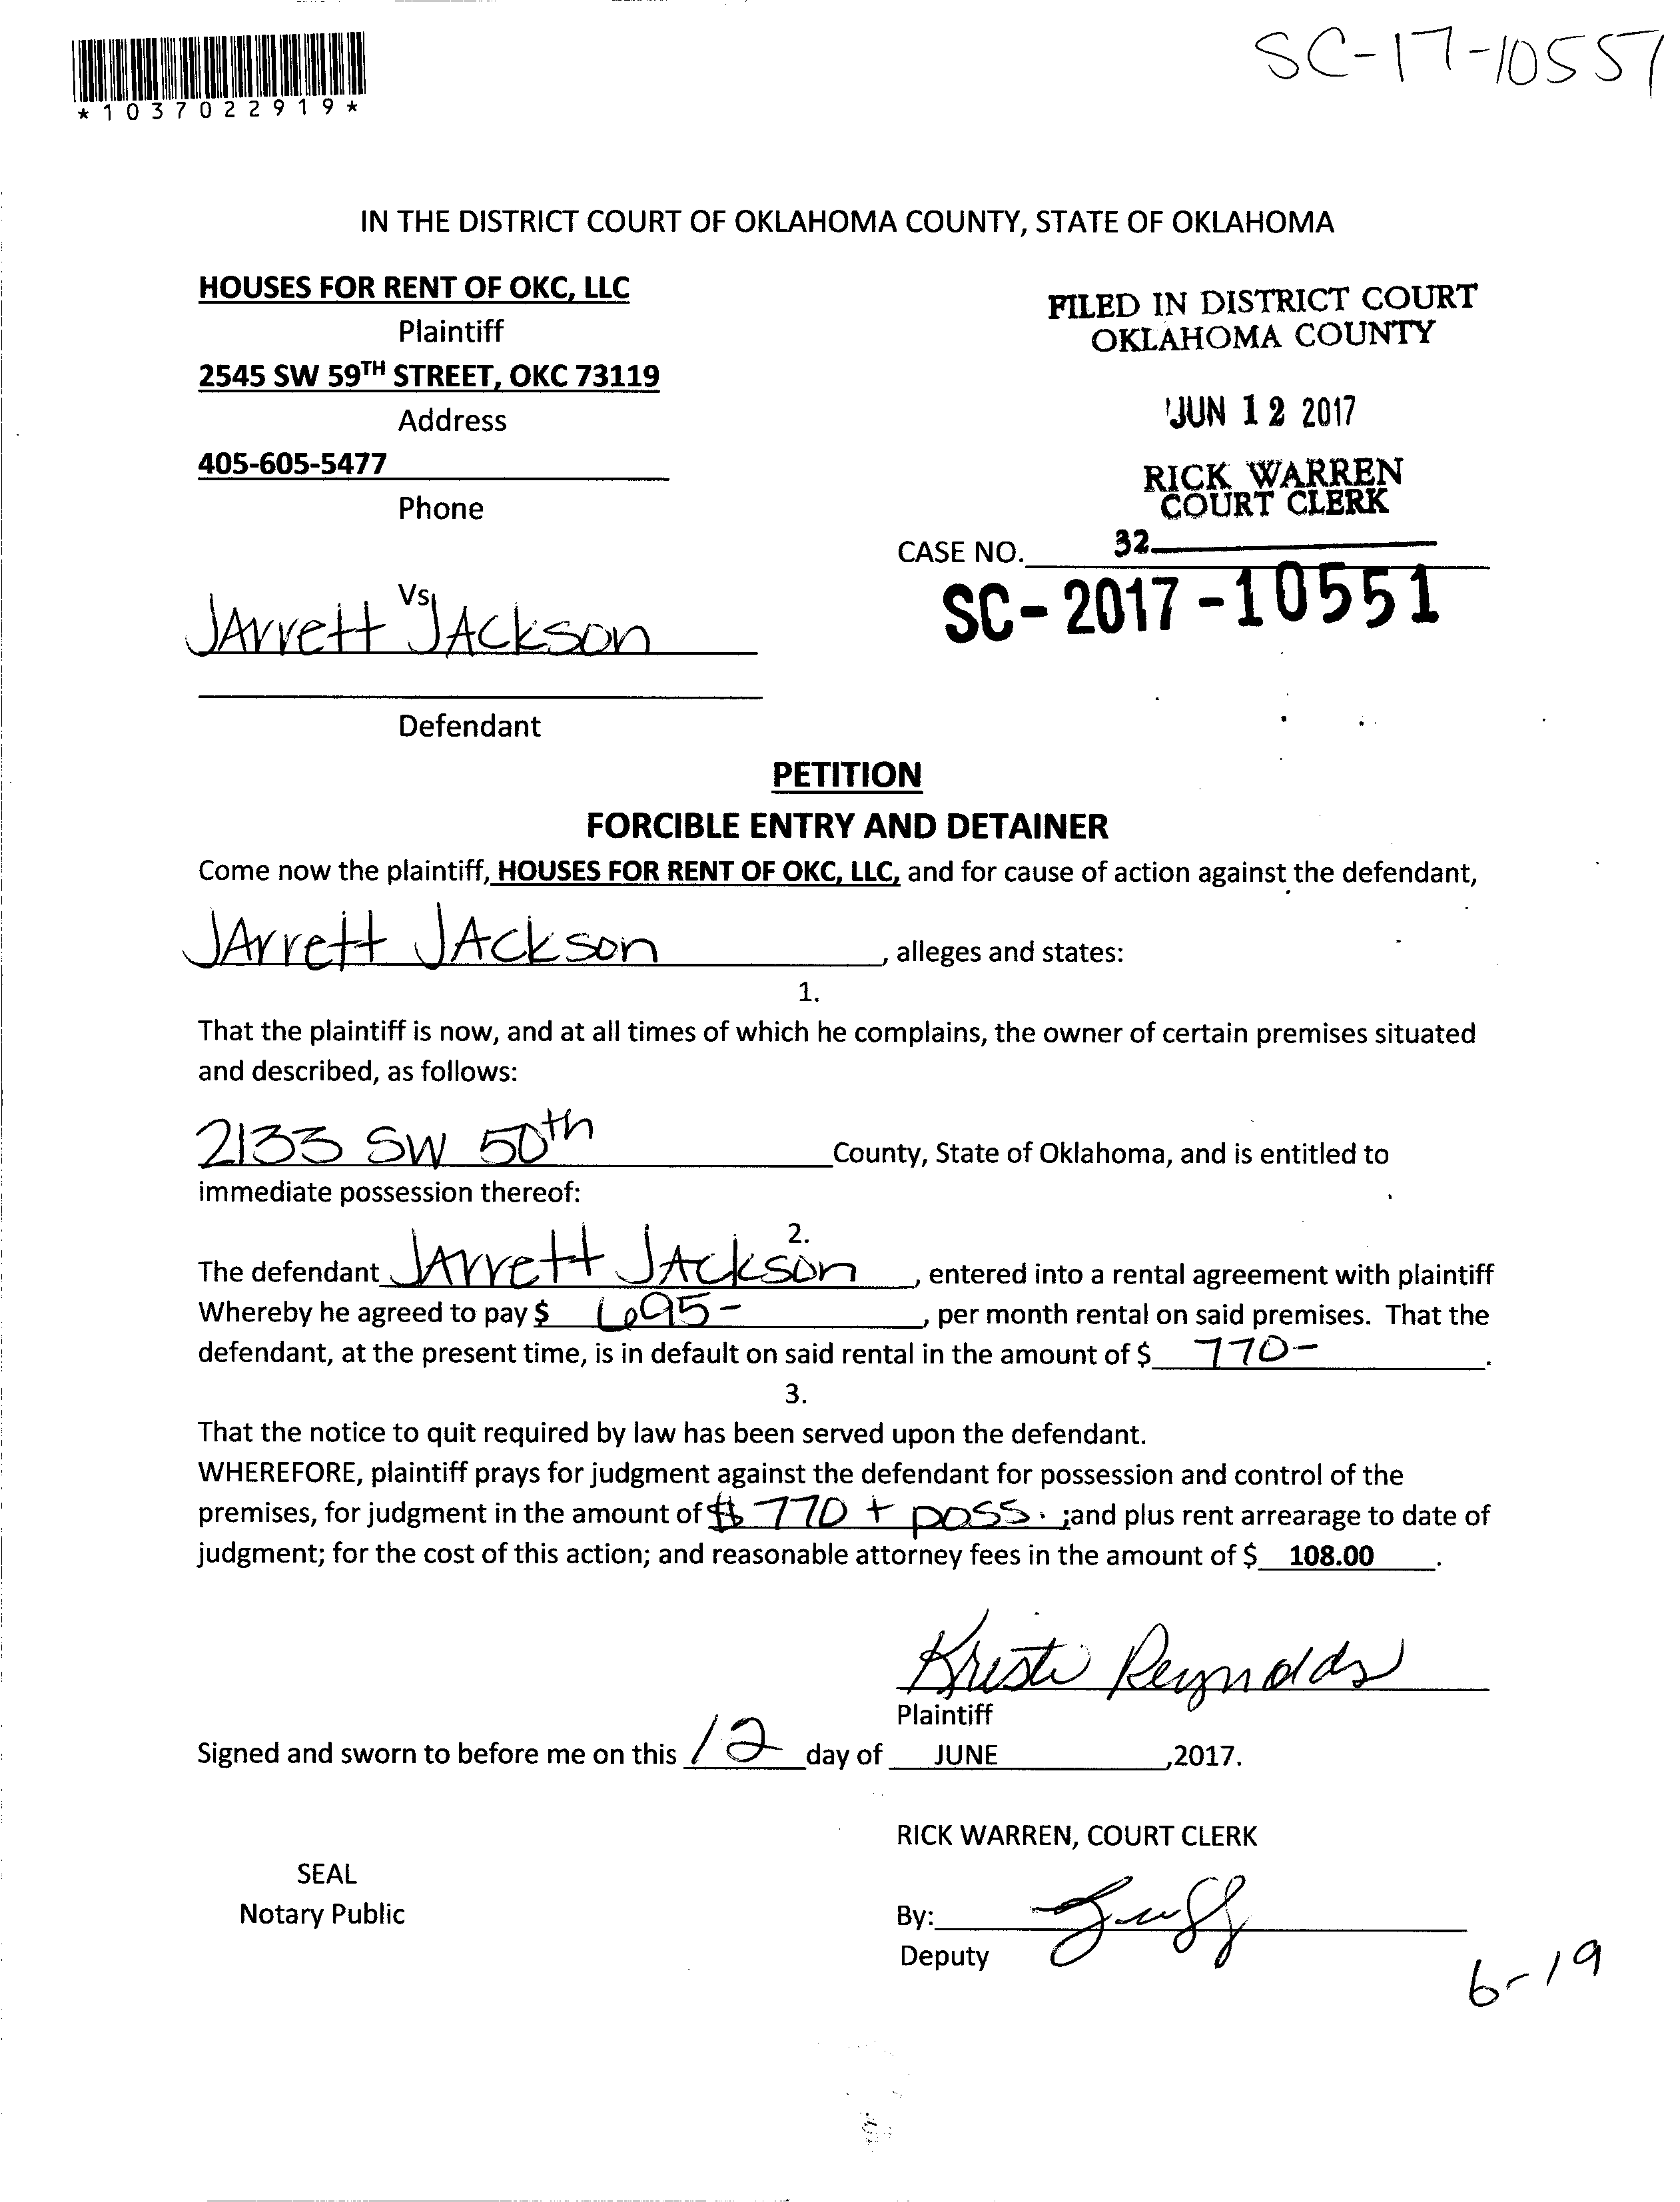 SC-17-10551
*1037022919*
IN THE DISTRICT COURT OF OKLAHOMA COUNTY, STATE OF OKLAHOMA
HOUSES FOR RENT OF OKC, LLC
Plaintiff
2545 SW 59TH STREET, OKC 73119
Address
405-605-5477
Phone
FILED IN DISTRICT COURT
OKLAHOMA COUNTY
JUN 12 2017
RICK WARREN
COURT CLERK
32
CASE NO.
SC-2017-10551
Vs
JArrett JAckson
Defendant
PETITION
FORCIBLE ENTRY AND DETAINER
Come now the plaintiff, HOUSES FOR RENT OF OKC, LLC, and for cause of action against the defendant,
JArrett JAckson, alleges and states:
1.
That the plaintiff is now, and at all times of which he complains, the owner of certain premises situated
and described, as follows:
2133 SW 50th County, State of Oklahoma, and is entitled to
immediate possession thereof:
2.
The defendant JArrett JAckson, entered into a rental agreement with plaintiff
Whereby he agreed to pay $ 695-, per month rental on said premises. That the
defendant, at the present time, is in default on said rental in the amount of $ 770-.
3.
That the notice to quit required by law has been served upon the defendant.
WHEREFORE, plaintiff prays for judgment against the defendant for possession and control of the
premises, for judgment in the amount of $ 770 + poss. ;and plus rent arrearage to date of
judgment; for the cost of this action; and reasonable attorney fees in the amount of $ 108.00.
Kristi Reynolds
Plaintiff
Signed and sworn to before me on this 12 day of JUNE ,2017.
RICK WARREN, COURT CLERK
SEAL
Notary Public
By:
Deputy
6-19